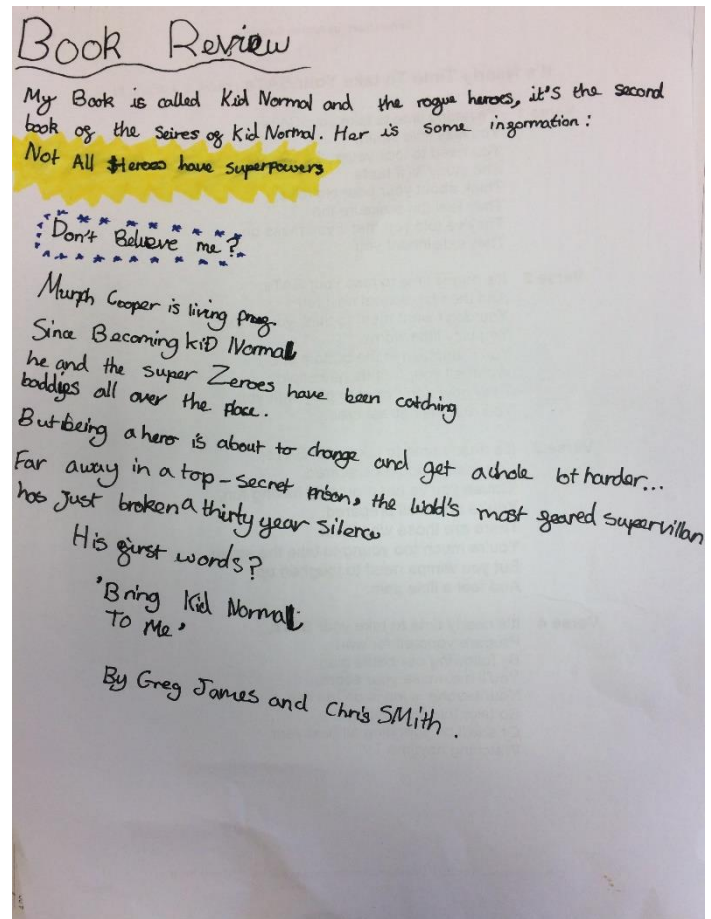 Book Review
My Book is called Kid Normal and the rogue heroes, it's the second
book of the Seires of Kid Normal. Her is some ingormation:
Not All Heroes have superpowers
Don't Beliveve me?
Murph Cooper is living proog.
Since Becoming kiD Normal
he and the super Zeroes have been catching
baddies all over the place.
But being a hero is about to change and get a lot harder...
Far away in a top-secret prison, the wold's most geared supervillan
has just broken a thirty year silence
His girst words?
'Bring Kid Normal
To Me'
By Greg James and Chris SMith.